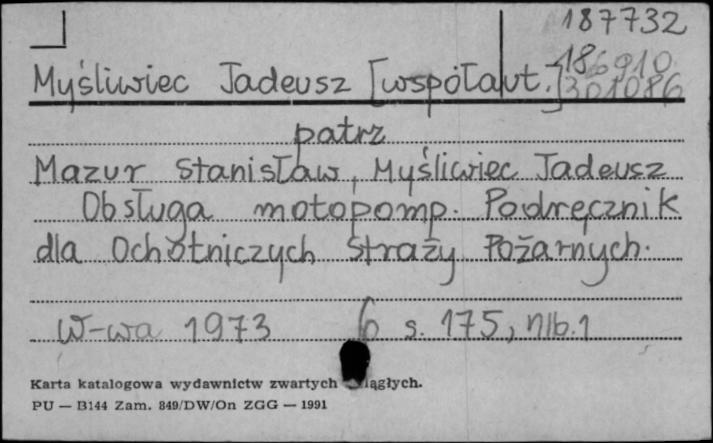 187732
186910
301086
Myśliwiec Jadeusz [współaut.]
patrz
Mazur Stanisław, Myśliwiec Jadeusz
Obsługa motopomp. Podręcznik
dla Ochotniczych Straży Pożarnych.
W-wa 1973 s. 175, nlb.1
Karta katalogowa wydawnictw zwartych iągłych.
PU — B144 Zam. 849/DW/On ZGG — 1991